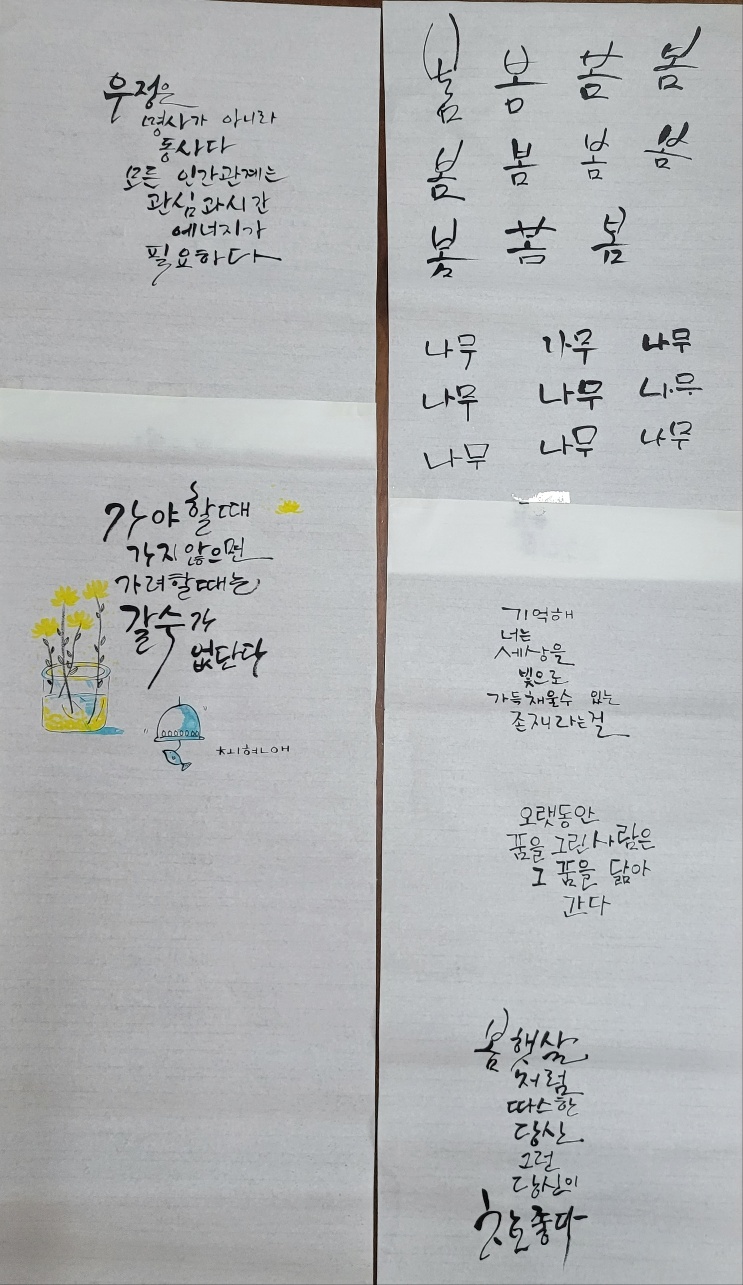 우정은
명사가 아니라
동사다
모든 인간관계는
관심과시간
에너지가
필요하다
가야할때
가지않으면
가려할때는
갈수가
없단다
봄 봄 봄 봄
봄 봄 봄 봄
봄 봄 봄
나무 나무 나무
나무 나무 나무
나무 나무 나무
기억해
너는
세상을
빛으로
가득채울수 있는
존재라는걸
오랫동안
꿈을 그린사람은
그 꿈을 닮아
간다
봄햇살
처럼
따스한
당신
그런
당신이
참좋다